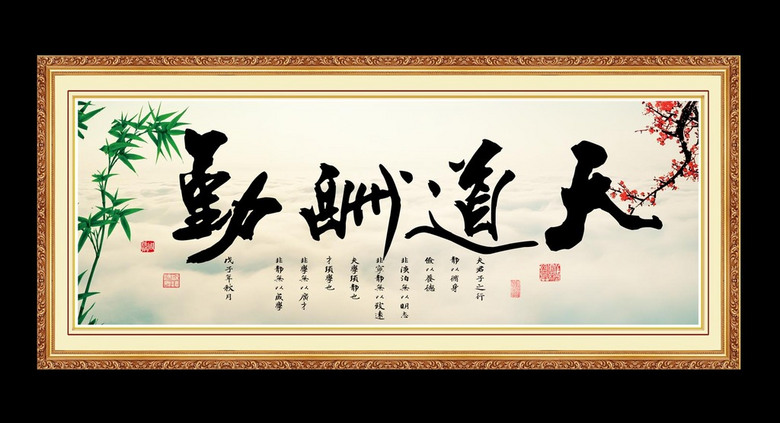 天道酬勤
夫君子之行
靜以脩身
儉以養德
非澹泊無以明志
非寧靜無以致遠
夫學須靜也
才須學也
非學無以廣才
非靜無以成學
戊子年秋月